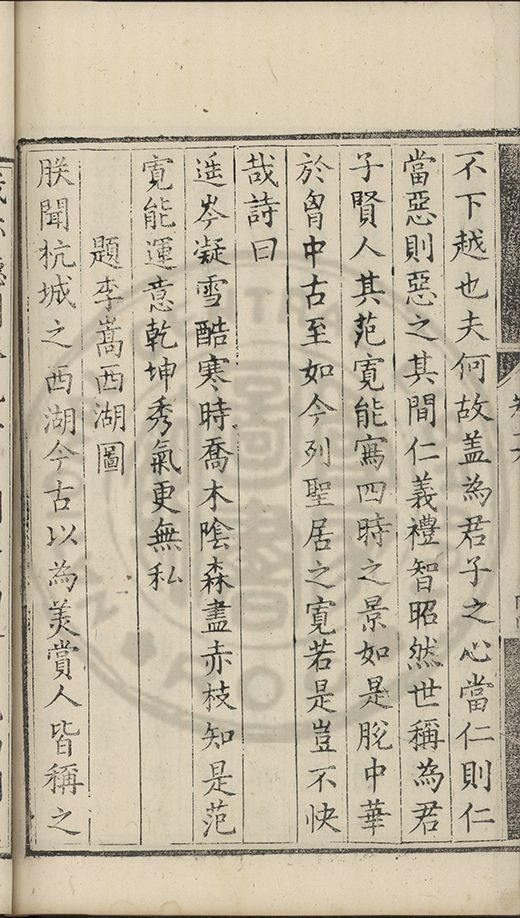 不下越也夫何故盖為君子之心當仁則仁
當惡則惡之其間仁義禮智昭然世稱為君
子賢人其范寛能寫四時之景如是脫中華
於胷中古至如今列聖居之寛若是豈不快
哉詩曰
遥岑凝雪酷寒時喬木陰森盡赤枝知是范
寛能運意乾坤秀氣更無私
題李嵩西湖圖
朕聞杭城之西湖今古以為美賞人皆稱之